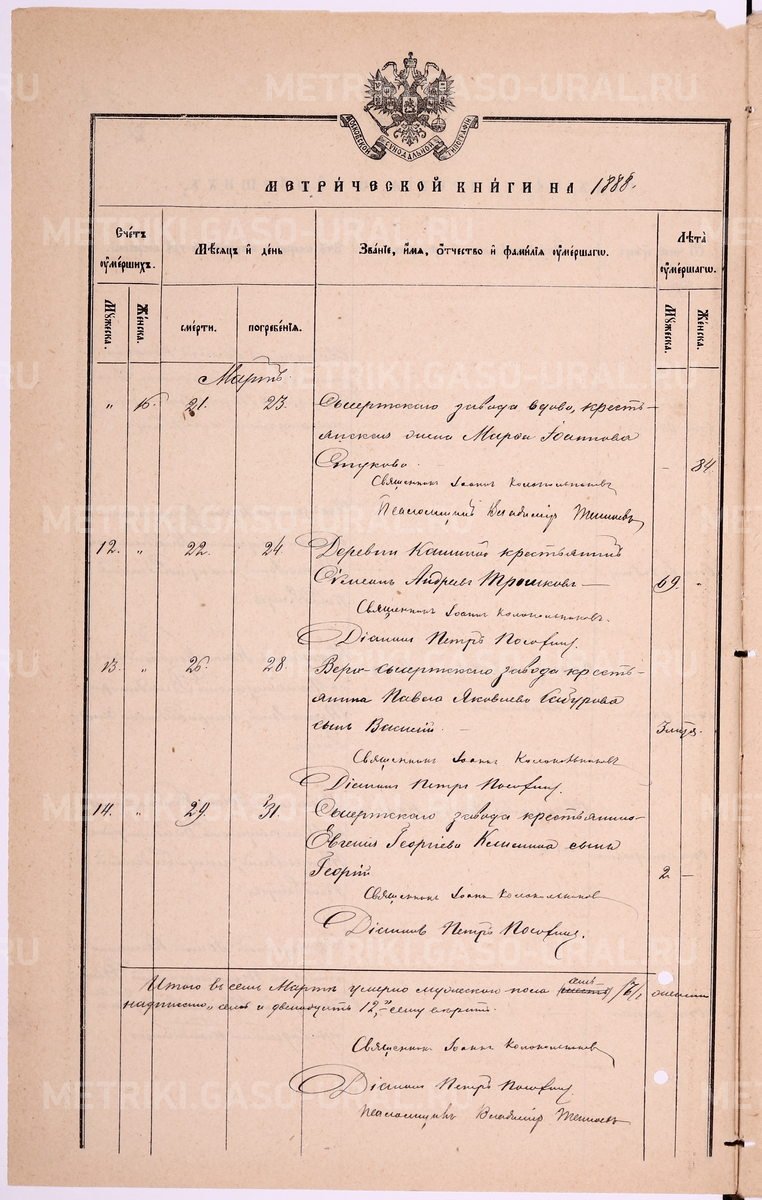 МОСКОВСКОЙ СѴНОДАЛЬНОЙ ТИПОГРАФІИ
МЕТРИ́ЧЕСКОЙ КНИ́ГИ НА 1888.
Сче́тъ ᲂу҆ме́ршихъ.
Мѣ́сяцъ и҆ де́нь
Зва́нїе, и҆́мя, ѻ҆́тчество и҆ фами́лїя ᲂу҆ме́ршагѡ.
Лѣ́та ᲂу҆ме́ршагѡ.
Мꙋ́жеска. Же́нска. сме́рти. погребе́нїя. Мꙋ́жеска. Же́нска.
Мартъ.
„ 16. 21. 23. Сысертскаго завода вдова, кресть-
янская жена Марѳа Іоаннова
Стукова. – 84
Священникъ Іоаннъ Колокольниковъ
Псаломщикъ Владиміръ
12. „ 22. 24. Деревни Кашиной крестьянинъ
Сѵмеонъ Андреевъ Трошковъ — 69. „
Священникъ Іоаннъ Колокольниковъ.
Діаконъ Петръ
13. „ 26. 28. Верх-сысертскаго завода кресть-
янина Павла Яковлева Сабурова
сынъ Василій. –
Священникъ Іоаннъ Колокольниковъ
Діаконъ Петръ
14. „ 29. 31. Сысертскаго завода крестьянина
Евгенія Георгіева сынъ
Георгій 2 –
Священникъ Іоаннъ Колокольниковъ
Діаконъ Петръ
Итого въ Мартѣ умерло мужескаго пола семь /7/,
надписано „семь" и двенадцать 12,
Священникъ Іоаннъ Колокольниковъ
Діаконъ Петръ
Псаломщикъ Владиміръ
METRIKI.GASO-URAL.RU